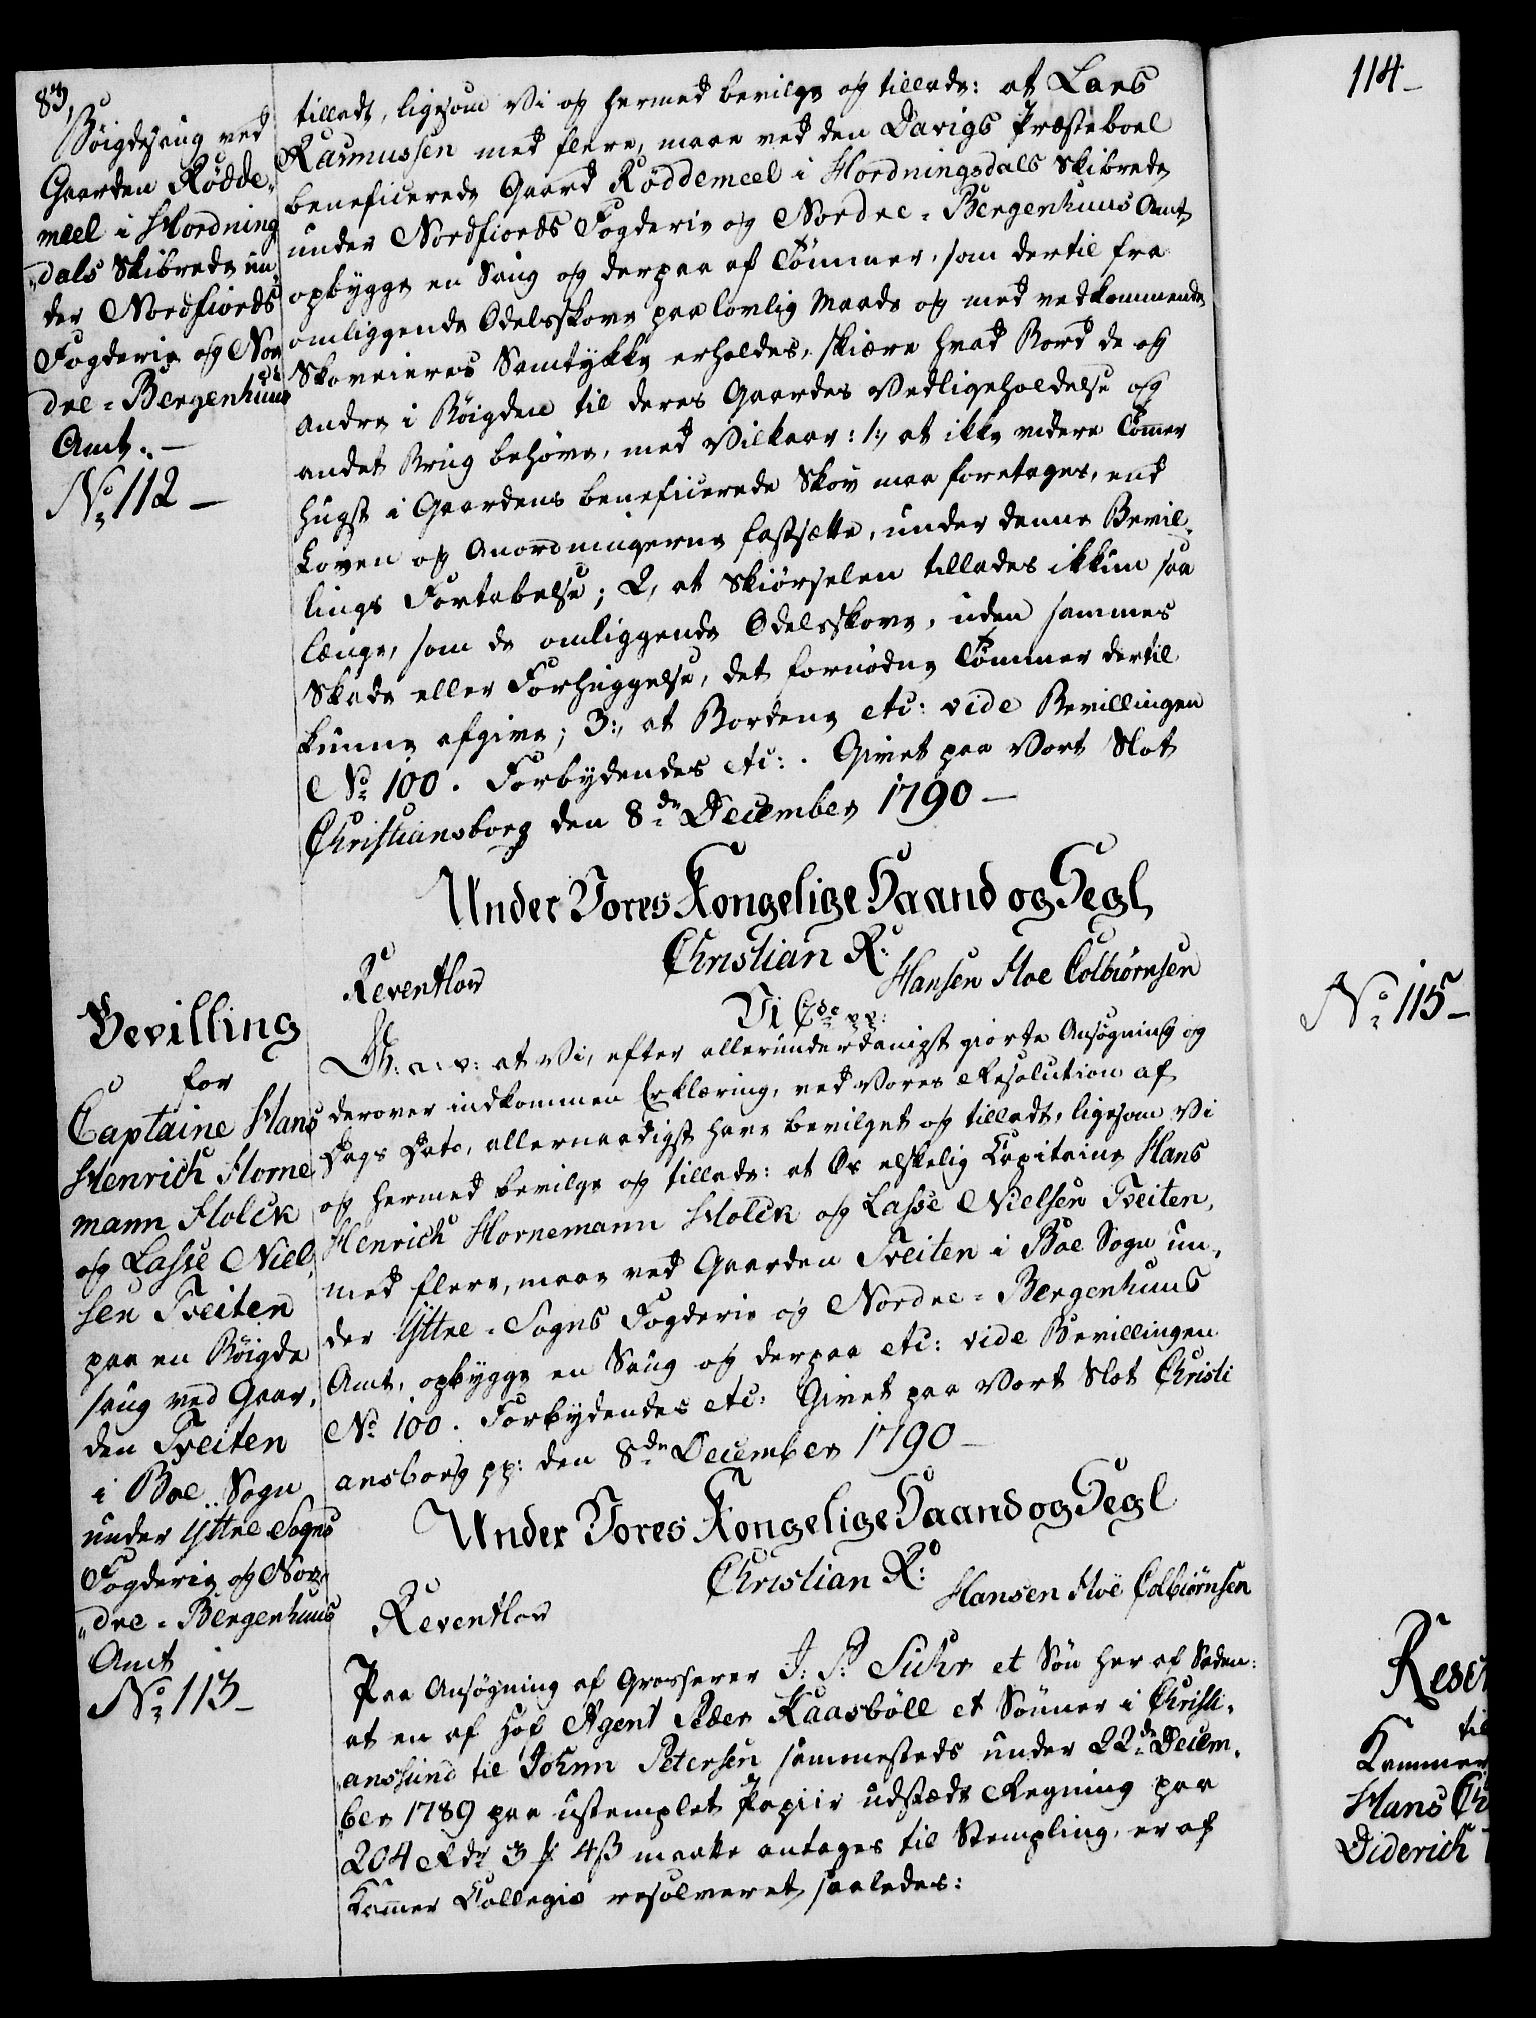 83,
Böigdesaug ved
Gaarden Rödde-
meel i Hordning
dals Skibrede un
der Nordfiords
Fogderie og Nor
dre-Bergenhuus
Amt. —
No 112 —
tilladt, ligesom Vi og hermed bevilge og tillade: at Lars
Rasmussen med flere, maae ved den Davigs Præsteboel
beneficerede Gaard Röddemeel i Hordningsdals Skibrede
under Nordfiords Fogderie og Nordre-Bergenhuus Amt
opbygge en Saug og derpaa af Tömmer, som dertil fra
omliggende Odelsskove paa lovlig Maade og med vedkommende
Skoveieres Samtykke erholdes, skiære hvad Bord de og
andre i Böigden til deres Gaardes Vedligeholdelse og
andet Brug behöve, med Vilkaar: 1:, at ikke videre Tömer
hugst i Gaardens beneficerede Skov maa foretages, end
Loven og Anordningerne fastsætte, under denne Bevil-
lings Fortabelse; 2, at Skiörselen tillades ikkun saa
længe, som de omliggende Odelsskove, uden sammes
Skade eller Forhuggelse, det fornödne Tömmer dertil
kunne afgive; 3:, at Bordene etc: vide Bevillingen
No 100. Forbydendes etc:. Givet paa Vort Slot
Christiansborg den 8de December 1790 —
Under Vores Kongelige Haand og Segl
Christian R:
Reventlow
Hansen Hoe Colbiörnsen
Bevilling
for
Captaine Hans
Henrich Horne
mann Holck
og Lasse Niel
sen Tveiten
paa en Böigde
saug ved Gaar-
den Tveiten
i Boe Sogn
under Yttre Sogns
Fogderie og Nor
dre-Bergenhuus
Amt
No 113 —
Vi C 7de pp:
G: a: v: at Vi, efter allerunderdanigst giorte Ansögning og
derover indkommen Erklæring, ved Vores Resolution af
Dags Dato, allernaadigst have bevilget og tilladt, ligesom Vi
og hermed bevilge og tillade: at Os elskelig Capitaine Hans
Henrich Hornemann Holck og Lasse Nielsen Tveiten,
med flere, maae ved Gaarden Tveiten i Boe Sogn un-
der Yttre-Sogns Fogderie og Nordre-Bergenhuus
Amt, opbygge en Saug og derpaa etc: vide Bevillingen
No 100. Forbydendes etc: Givet paa Vort Slot Christi
ansborg pp: den 8de December 1790 —
Under Vores Kongelige Haand og Segl
Christian R:
Reventlow
Hansen Hoe Colbiörnsen
Paa Ansögning af Grosserer J: P: Suhr et Sön her af Staden:
at en af Hof Agent Peder Kaasböll et Sönner i Christi-
ansund til Johnn Petersen sammesteds under 22de Decem-
ber 1789 paa ustemplet Papiir udstæde Regning paa
204 Rdr 3 ℔ 4ß maatte antages til Stempling, er af
Kamer Collegio resolveret saaledes:
114 —
No 115 —
Reser
til
Kammer
Hans Ch
Diderich